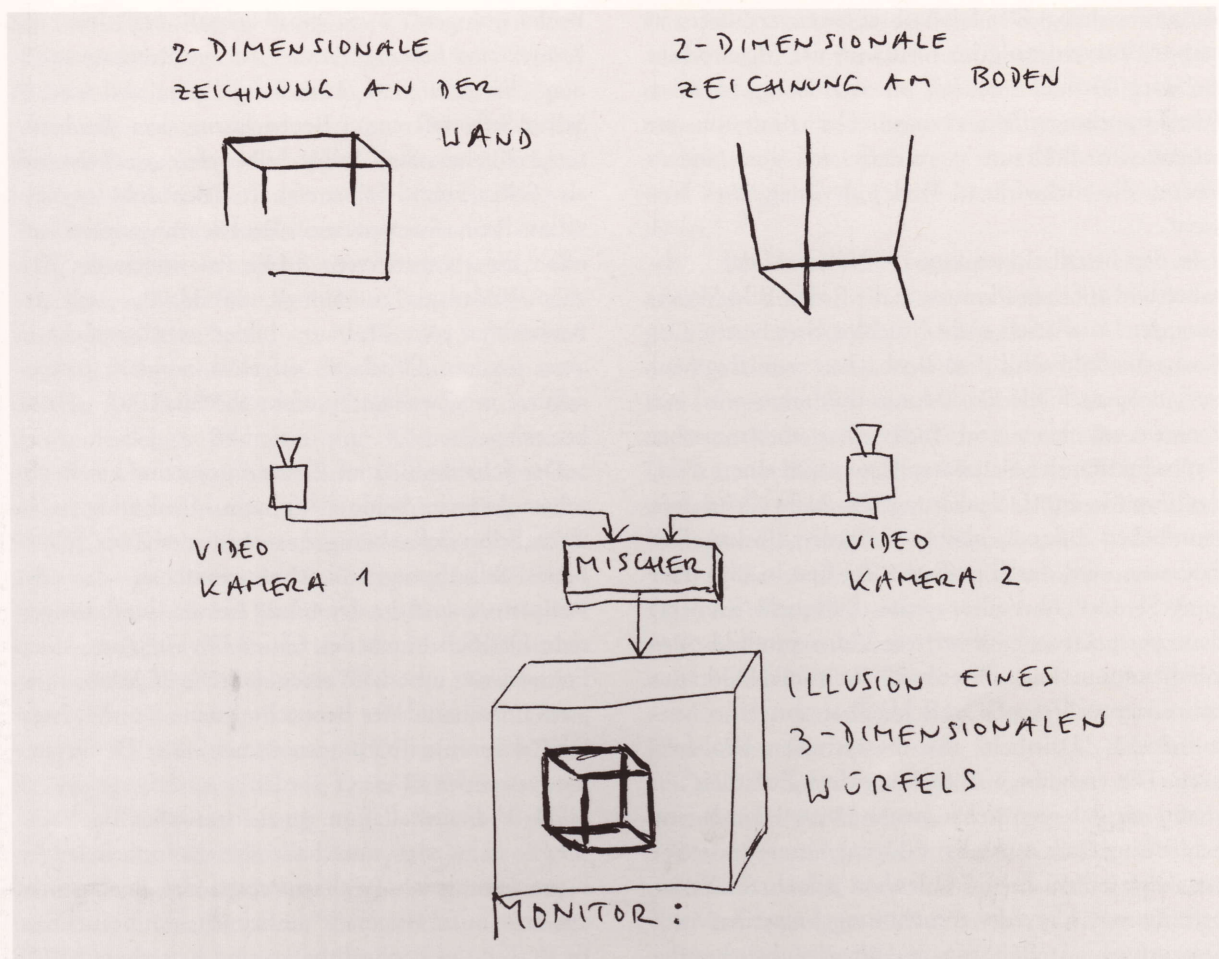 2-DIMENSIONALE
ZEICHNUNG AN DER
WAND
2-DIMENSIONALE
ZEICHNUNG AM BODEN
VIDEO
KAMERA 1
MISCHER
VIDEO
KAMERA 2
ILLUSION EINES
3-DIMENSIONALEN
WÜRFELS
MONITOR: